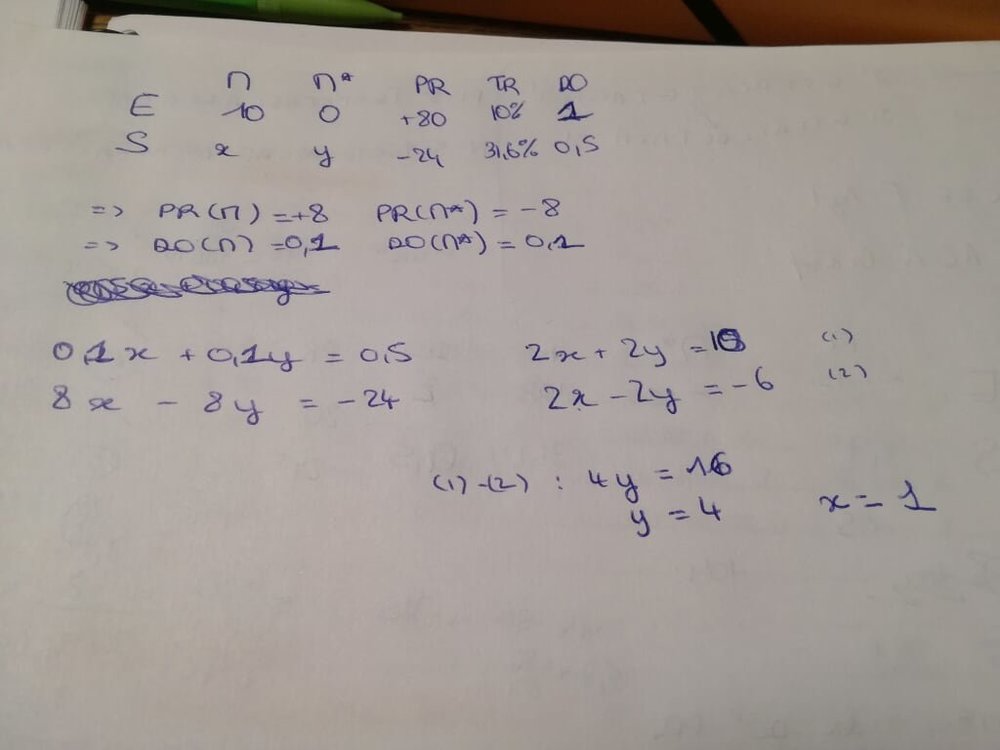 Π Π* PR TR DO
E 10 0 +80 10% 1
S x y -24 31,6% 0,5
=> PR(Π) = +8 PR(Π*) = -8
=> DO(Π) = 0,1 DO(Π*) = 0,1
0,1x + 0,1y = 0,5 2x + 2y = 10 (1)
8x - 8y = -24 2x - 2y = -6 (2)
(1)-(2) : 4y = 16
y = 4 x = 1